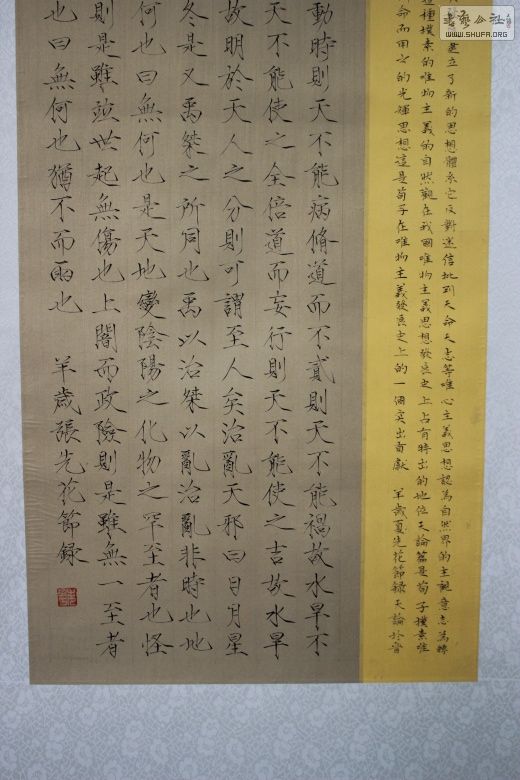 動時則天不能病脩道而不貳則天不能禍故水旱不
天不能使之全倍道而妄行則天不能使之吉故水旱
故明於天人之分則可謂至人矣治亂天邪曰日月星
冬是又禹桀之所同也禹以治桀以亂治亂非時也地
何也曰無何也是天地之變陰陽之化物之罕至者也怪
則是雖竝世起無傷也上闇而政險則是雖無一至者
也曰無何也猶不而雨也 羊歲張先花節錄
建立了新的思想體系它反對迷信批判天命天志等唯心主義思想認為自然界的主觀意志為轉
這種樸素的唯物主義的自然觀在我國唯物主義思想發展史上占有特出的地位天論篇是荀子樸素唯
命而用之的光輝思想這是荀子在唯物主義發展史之上的一個突出貢獻 羊歲夏先花節錄天論於
書藝公社
WWW.SHUFA.ORG